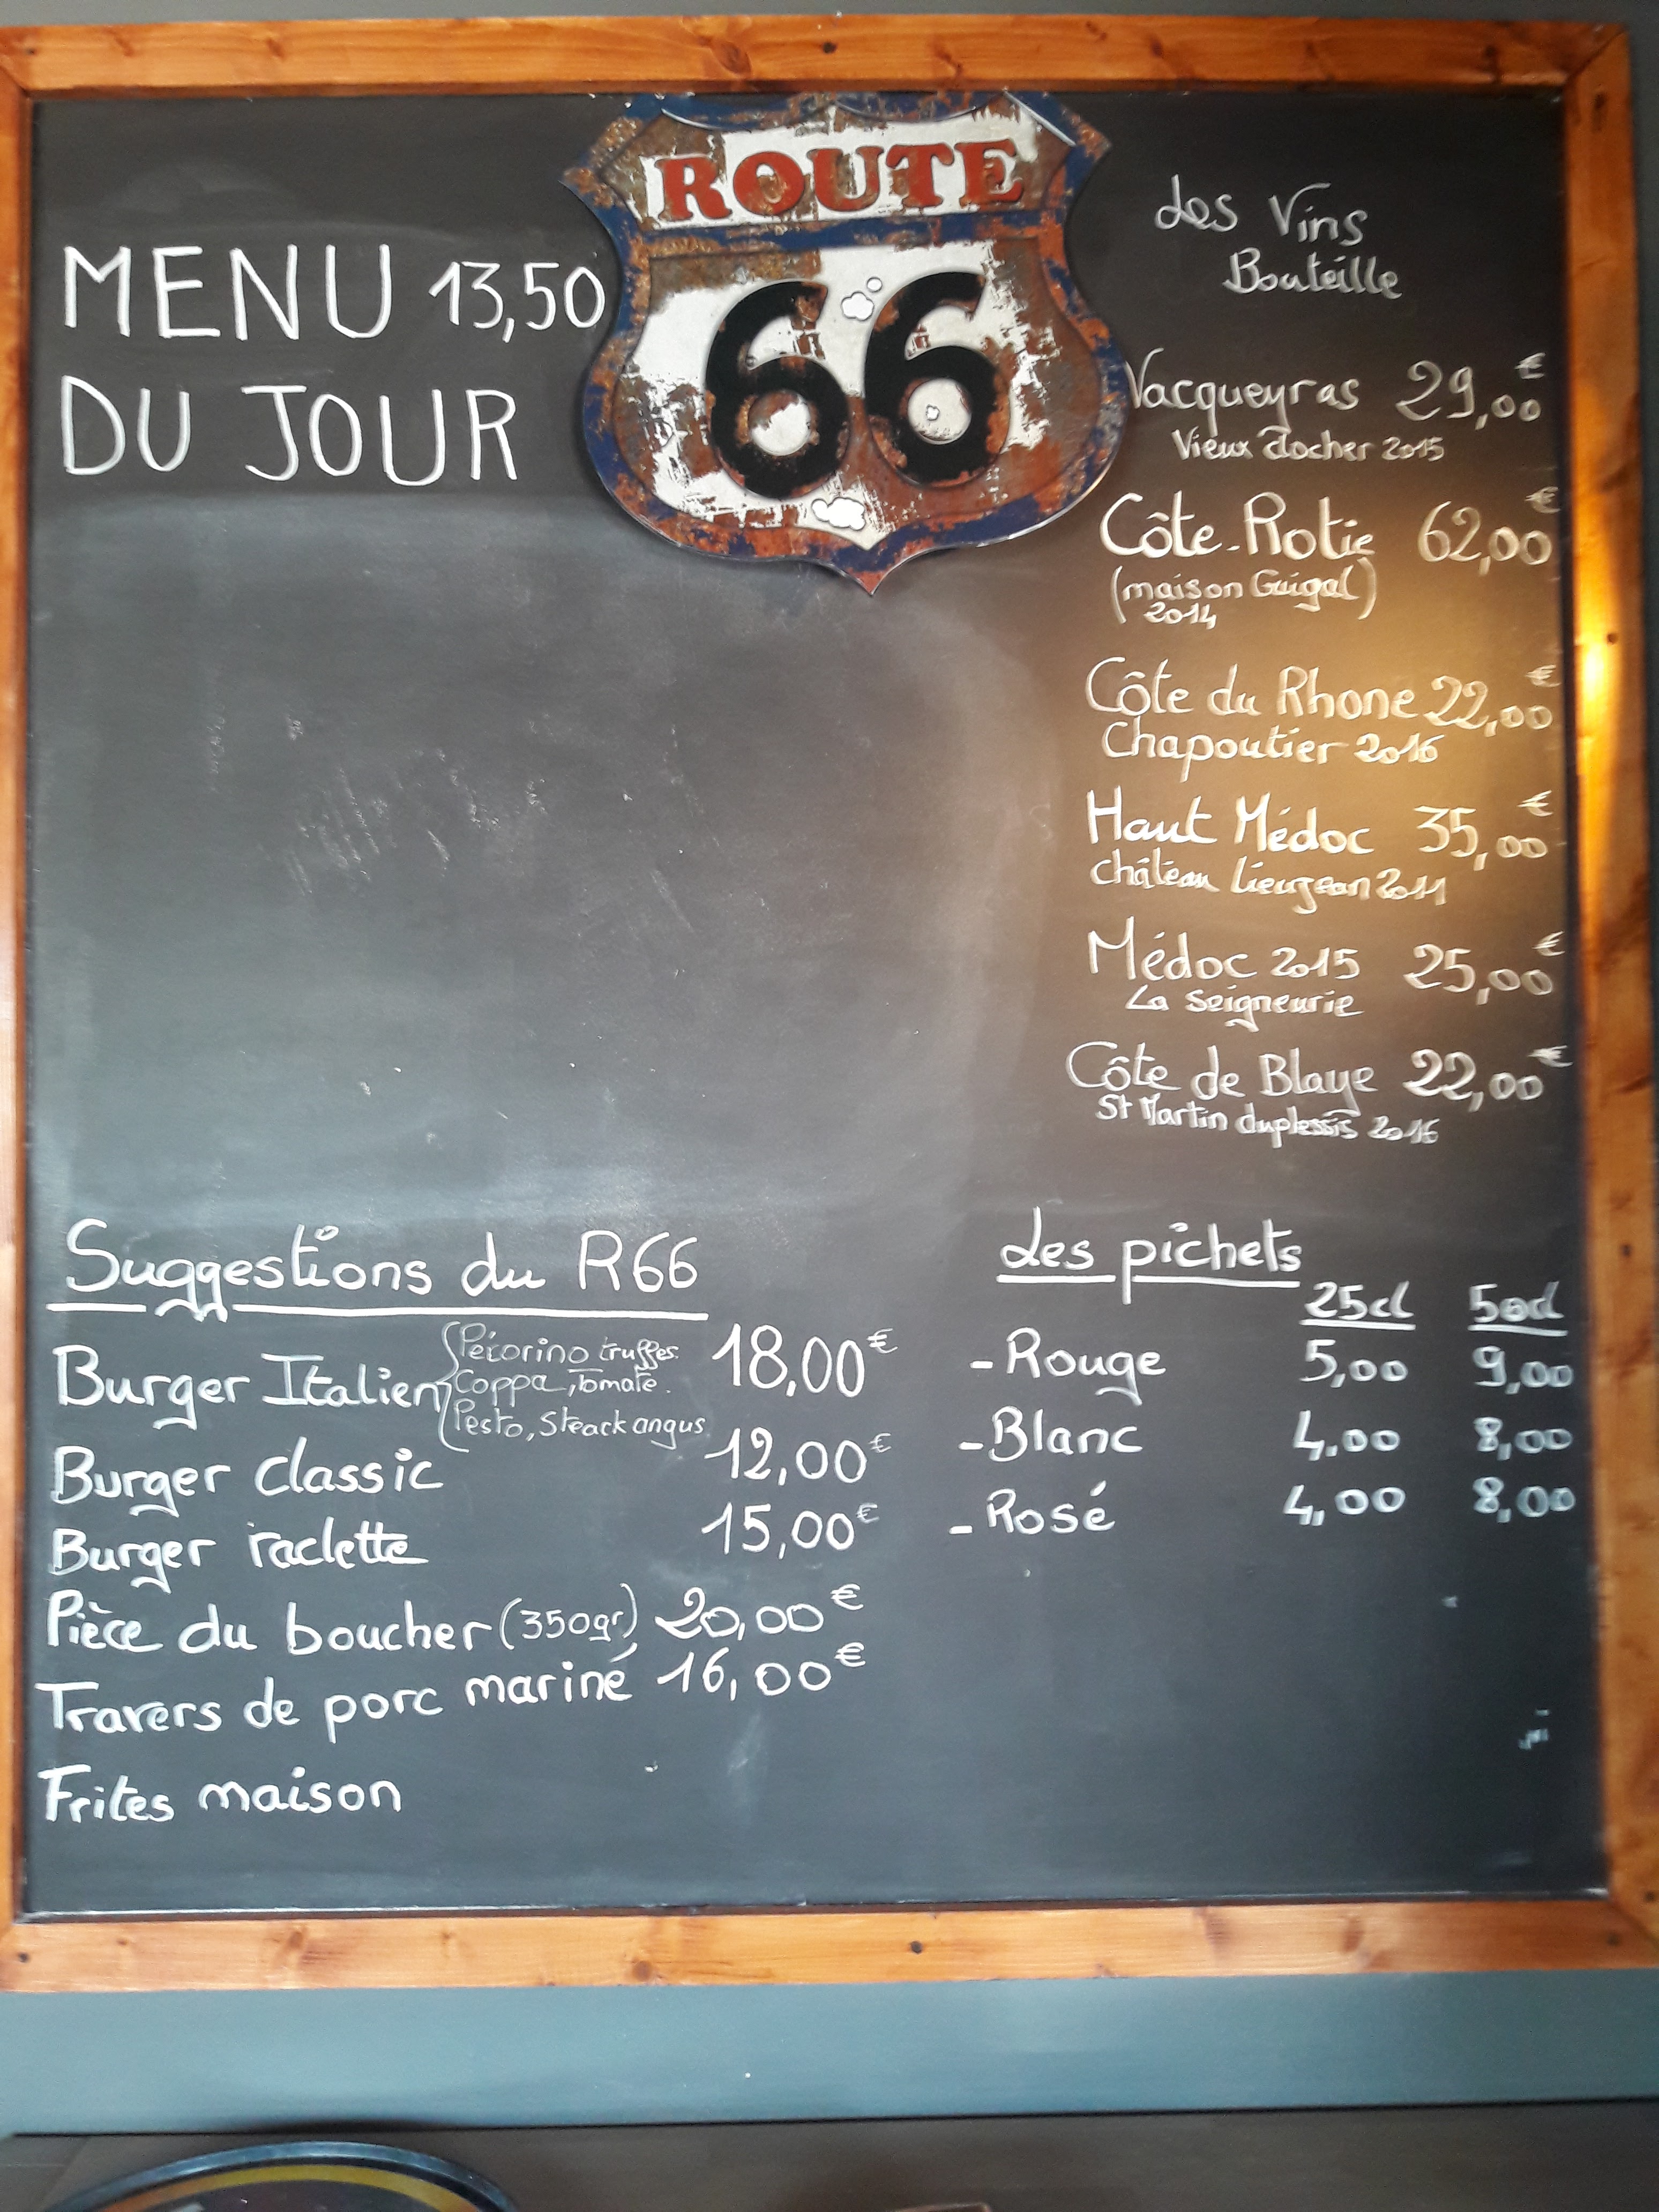 ROUTE
66
MENU 13,50
DU JOUR
Les Vins
Bouteille
Vacqueyras 29,00€
Vieux clocher 2015
Côte-Rotie 62,00€
(maison Guigal)
2014
Côte du Rhone 22,00€
Chapoutier 2016
Haut Médoc 35,00€
château Lieujean 2011
Médoc 2015 25,00€
La Seigneurie
Côte de Blaye 22,00€
St Martin duplessis 2016
Suggestions du R66
Burger Italien 18,00€
Pécorino truffes.
Coppa, Tomate.
Pesto, Steack angus
Burger classic 12,00€
Burger raclette 15,00€
Pièce du boucher (350gr) 20,00€
Travers de porc mariné 16,00€
Frites maison
Les pichets
25cl 50cl
- Rouge 5,00 9,00
- Blanc 4,00 8,00
- Rosé 4,00 8,00